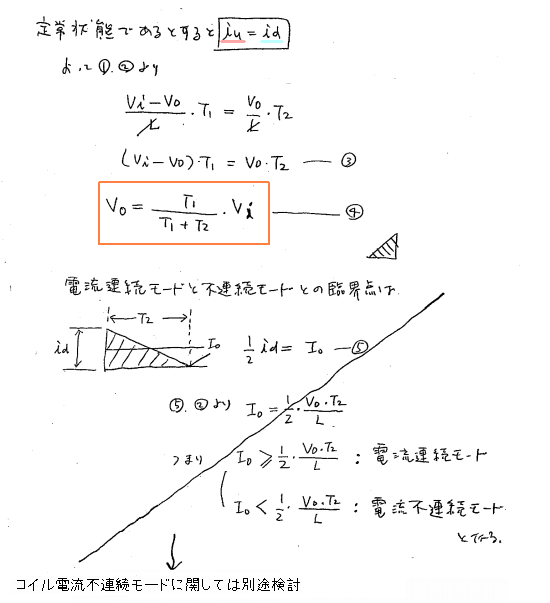 定常状態であるとすると iu = id
よって ①, ② より
Vi-Vo/L · T1 = Vo/L · T2
(Vi-Vo)·T1 = Vo·T2 — ③
Vo = T1/T1+T2 · Vi — ④
電流連続モードと不連続モードとの臨界点は
T2
id
Io
1/2 id = Io — ⑤
⑤, ② より Io = 1/2 · Vo·T2/L
つまり Io ≧ 1/2 · Vo·T2/L : 電流連続モード
Io < 1/2 · Vo·T2/L : 電流不連続モード
となる.
コイル電流不連続モードに関しては別途検討